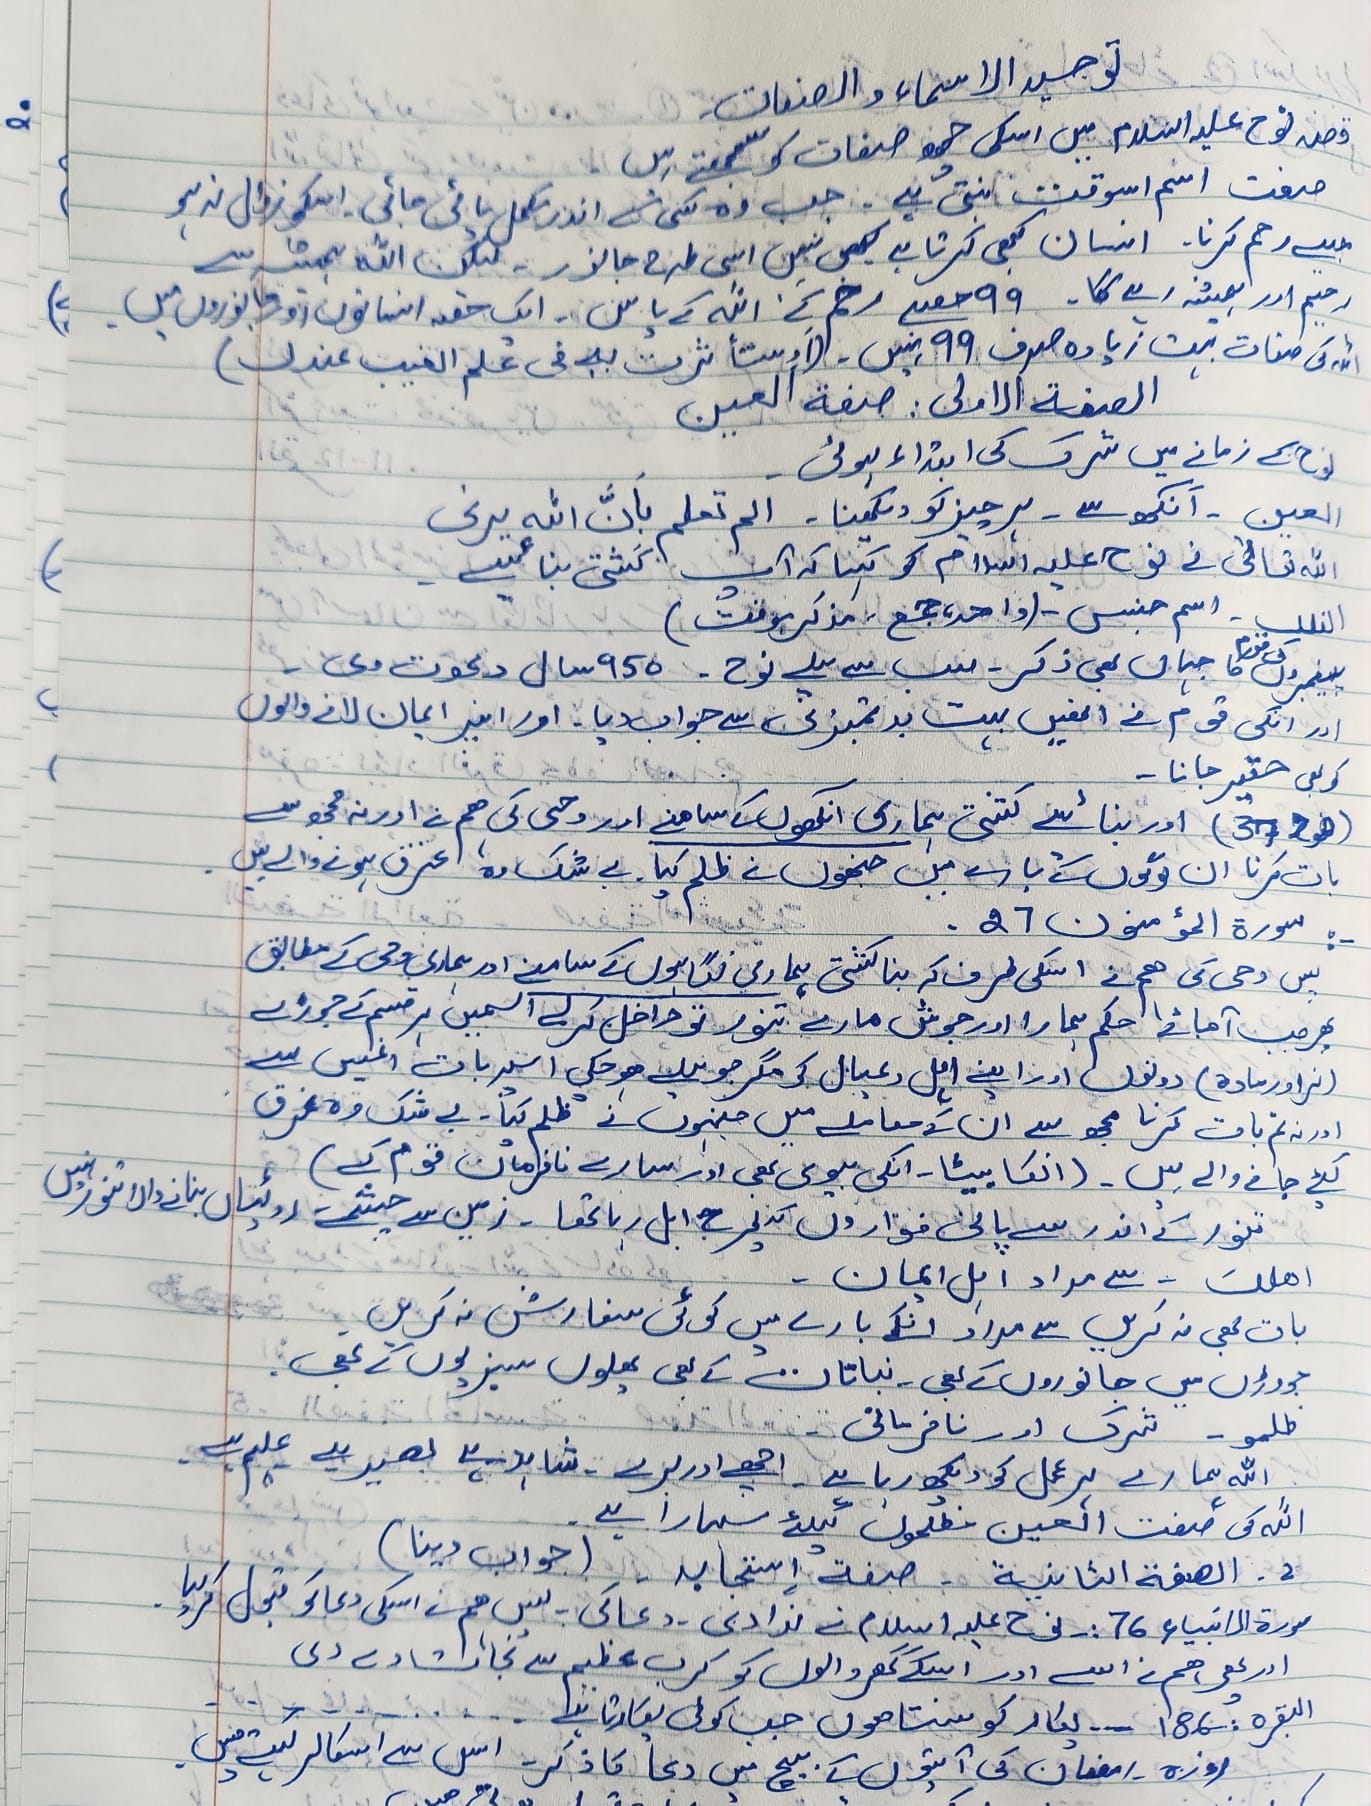 توحید الاسماء والصفات۔
قصہ نوح علیہ السلام میں اسکی صفات کو سمجھتے ہیں
صفت اسم اسوقت بنتی ہے ۔ جب وہ کسی کے اندر مکمل پائی جائی۔ اسکو زوال نہ ہو
جیسے رحم کرنا۔ انسان کبھی کرتا ہے کبھی نہیں اسی طرح جانور ۔ لیکن اللہ ہمیشہ سے
رحیم اور ہمیشہ رہے گا۔ 99 حصے رحم کے اللہ کے پاس ۔ ایک حصہ انسانوں اور جانوروں میں۔
اللہ کی صفات بہت زیادہ صرف 99 نہیں۔ (أو ستأثرت بہ فی علم الغیب عندک)
الصفة الاولی : صفة العین
نوح کے زمانے میں شرک کی ابتداء ہوئی۔
العین ۔ آنکھ سے ۔ ہر چیز کو دیکھنا ۔ الم تعلم بأنّ اللہ یرٰی
اللہ تعالیٰ نے نوح علیہ السلام کو کہا کہ آپ کشتی بنائیے۔
الفلک ۔ اسم جنس ۔ (واحد، جمع ، مذکر مونث)
پیغمبروں کی قوم کا جہاں بھی ذکر ۔ سب سے پہلے نوح ۔ 950 سال دعوت دی۔
اور انکی قوم نے انھیں بہت بدتمیزی سے جواب دیا۔ اور انپر ایمان لانے والوں
کو بھی حقیر جانا ۔
(ھود 37) اور بنائے کشتی ہماری انکھوں کے سامنے اور وحی کی ھم نے اور نہ مجھ سے
بات کرنا ان لوگوں کے بارے میں جنھوں نے ظلم کیا۔ بے شک وہ غرق ہونے والے ہیں۔
سورة المؤمنون 27 ۔
پس وحی کی ھم نے اسکی طرف کہ بنا کشتی ہماری نگاہوں کے سامنے اور ہماری وحی کے مطابق
پھر جب آجائے حکم ہمارا اور جوش مارے تنور تو داخل کر لے اسمیں ہر قسم کے جوڑے
(نر اور مادہ) دونوں اور اپنے اہل و عیال کو مگر جو پہلے ہو چکی اسپر بات انھیں سے
اور نہ تم بات کرنا مجھ سے ان کے معاملے میں جنہوں نے ظلم کیا۔ بے شک وہ غرق
کیے جانے والے ہیں ۔ (انکا بیٹا۔ انکی بیوی بھی اور سارے نافرمان قوم کے)
تنور کے اندر سے پانی فواروں کی طرح ابل رہا تھا ۔ زمین سے چشمے۔ روٹیاں بنانے والا تنور نہیں
اھلک ۔ سے مراد اہل ایمان ۔
بات بھی نہ کریں سے مراد انکے بارے میں کوئی سفارش نہ کریں۔
جوڑوں میں جانوروں کے بھی ۔ نباتات کے بھی پھلوں سبزیوں کے بھی۔
ظلمو ۔ شرک اور نافرمانی ۔
اللہ ہمارے ہر عمل کو دیکھ رہا ہے ۔ اچھے اور برے ۔ شاہد ہے بصیر ہے علیم ہے۔
اللہ کی صفت العین مظلموں کیلئے سہارا ہے۔
2۔ الصفة الثانیة ۔ صفة إستجابہ ۔ (جواب دینا)
سورة الانبیاء 76 :۔ نوح علیہ السلام نے ندا دی ۔ دعا کی ۔ پس ھم نے اسکی دعا کو قبول کر لیا۔
اور بھی ھم نے اسے اور اسکے گھر والوں کو کرب عظیم سے نجات دے دی
البقرہ : 186 ۔۔۔ پکار کو سنتا ھوں جب کوئی پکارتا ہے ۔۔۔۔۔۔۔
روزہ رمضان کی آیتوں کے بیچ میں دعا کا ذکر ۔ اس سے اسکالر کہتے ہیں